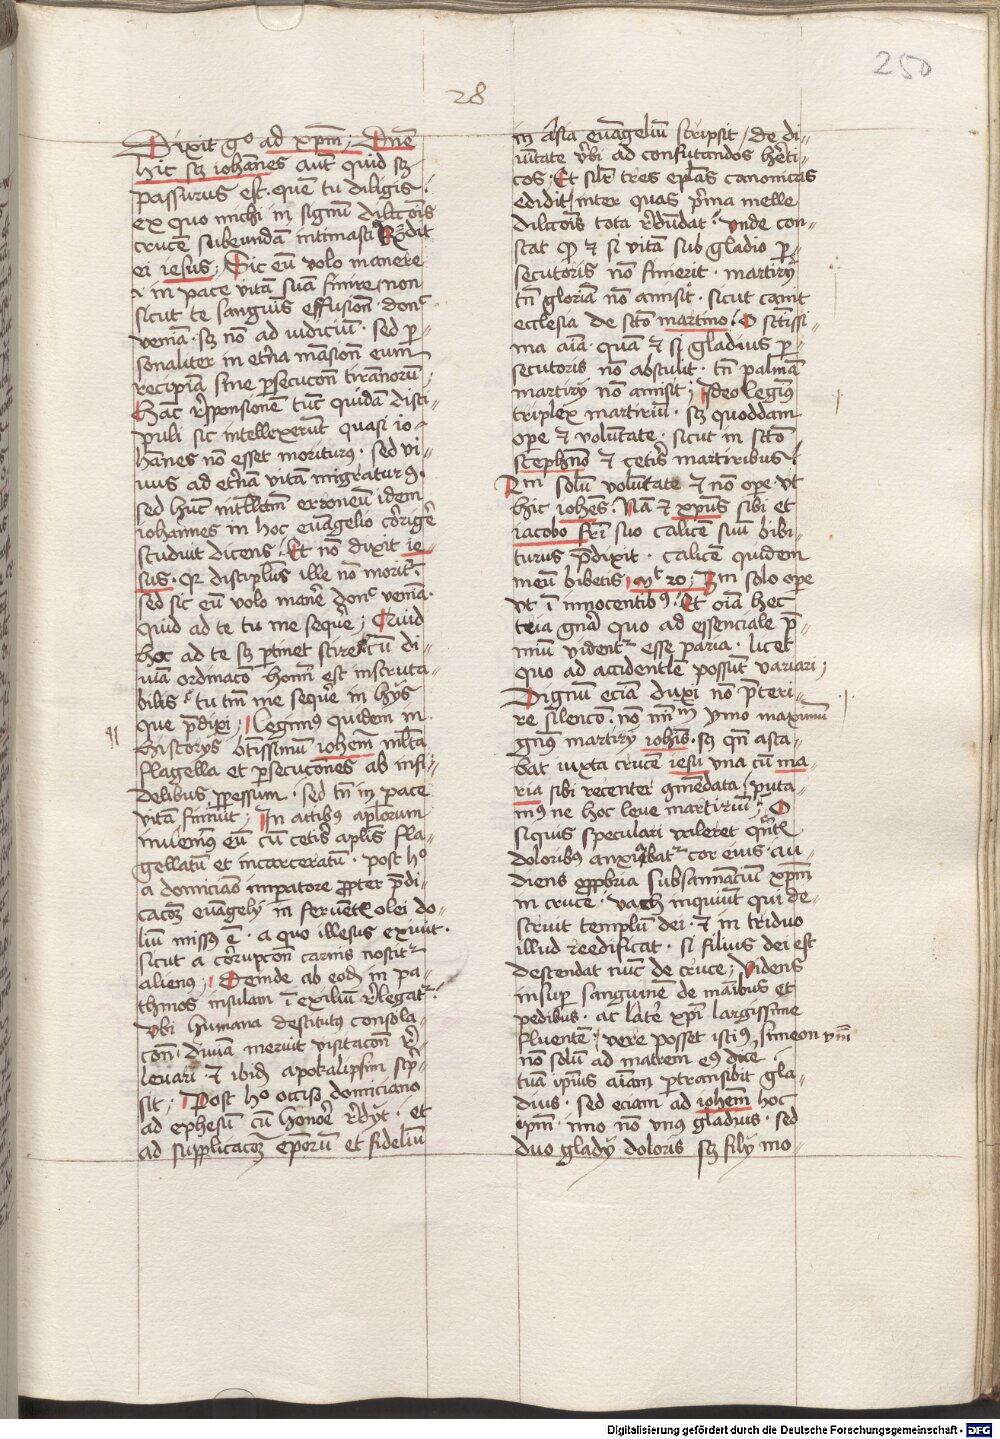 250
28
Dixit g° ad xpm̄; Dn̄e
hic sz iohannes aut̄ quid sz
passurus est · quē tu diligis ·
ex quo michi in signū dilc̄cōis
crucē subeundā intimasti Rn̄dit
ei iesus; Sic eū volo manere
⁊ in pace vitā suā finire non
sicut te sanguīs effusionē · donc̄
veniā · sz nō ad iudiciū · sed p̱-
sonaliter in et̄na māsionē eum
recipiā sine p̱secucōn tirannorū;
Hāc r̄sponsionē tūc quidā disci-
puli sic intellexerūt quasi io-
hānes nō esset moriturꝯ · sed vi-
uus ad et̄nā vitā migraturꝯ ·
sed hūc intll̄cm̄ erroneū idem
iohannes in hoc euāgelio cōrriḡe
studuit dicens · Et nō dixit ie-
sus · qr̄ discipl̄us ille nō moritᷣ ·
sed sic eū volo man̄e donc̄ veniā ·
Quid ad te tu me seqūe; Quid
hoc ad te sz p̱tinet scire cū di-
uīa ordinacō homī est inscruta-
bilis · tu tm̄ me seqūe in hijs
que p̄dixi; Legimꝯ quidem in
historijs btīssimū iohem̄ ml̄ta
flagella et p̱secucōnes ab infi-
delibus p̱pessum · sed tn̄ in pace
vitā finiuit; In actibꝯ apl̄orum
inuenimꝯ eū cū ceteris apl̄is fla-
gellatū et incarceratū · post h°
a domiciano imp̱atore p̱pter p̄di-
cacōꝫ euāgelij in feruētis olei do-
liū missꝯ ē · a quo illesus exiuit ·
sicut a cōrrupcōn carnis nostitᷣ
alienꝯ; Deinde ab eodē in pa-
thmos insulam ī exiliū r̄legatᷣ ·
vbi humana destitutꝯ consola-
cōn · diuīa meruit visitacōn r̄-
leuari · ⁊ ibid̄ apokalipsim scp̄-
sit; Post h° occiso domiciano
ad ephesū cū honōre r̄dijt · et
ad supplicacōꝫ ep̄orū et fideliū
in asia euāgeliū scripsit / de di-
uītate v̄bi ad confutandos h̄eti-
cos · Et silr̄ tres ep̄las canonicas
edidit / inter quas p̄ma melle
dilc̄cōis tota r̄dūdat · Vnde con-
stat qꝫ ⁊ si vitā sub gladio p̱-
secutoris nō finierit · martirij
tn̄ gloriā nō amisit · sicut canit
ecclesia de scto martino · O scīssi-
ma aīa · quā ⁊ si gladius p̱-
secutoris nō abstulit · tn̄ palmā
martirij nō amisit; Ideo legimꝯ
triplex martiriū · sz quoddam
ope ⁊ volūtate · sicut in scto
stephano ⁊ ceteris martiribus ·
Qm̄ solū volūtate ⁊ nō ope vt
hic iohēs · Nā ⁊ xpus sibi et
iacobo fr̄i suo calicē suū bibi-
turus p̄dixit · calicē quidem
meū bibetis · mt 20; Qm̄ solo ope
vt ī innocentibꝯ · Et oīa hec
tria gn̄a quo ad essenciale p̄-
miū videntᷣ esse paria · licet
quo ad accidentlē possūt variari;
Dignū eciā duxi nō p̄teri-
re silencō · nō minimū ymo maximū
gnꝯ martirij iohīs · sz qn̄ asta-
bat iuxta crucē iesu vna cū ma-
ria sibi recenter cōmēdata · puta-
mꝯ ne hoc leue martiriū · O
siquis speculari valeret q̄ntis
doloribꝯ anxiabatᷣ cor eius · au-
diens opprobria subsannanciū xpm̄
in cruce · vach inquiūt qui de-
struit templū dei · ⁊ in triduo
illud reedificat · si filius dei est
descendat nūc de cruce; Videns
insup̱ sanguinē de manibus et
pedibus · ac latēe xpī largissime
fluentē · vere posset istiꝯ simeon vm̄
nō solū ad matrem eꝯ dice ·
tuā ipsius aīam p̱transibit gla-
dius · sed eciam ad iohem̄ hoc
ipm̄ · imo nō vnꝯ gladius · sed
duo gladij doloris sz filij mo-
Digitalisierung gefördert durch die Deutsche Forschungsgemeinschaft - DFG